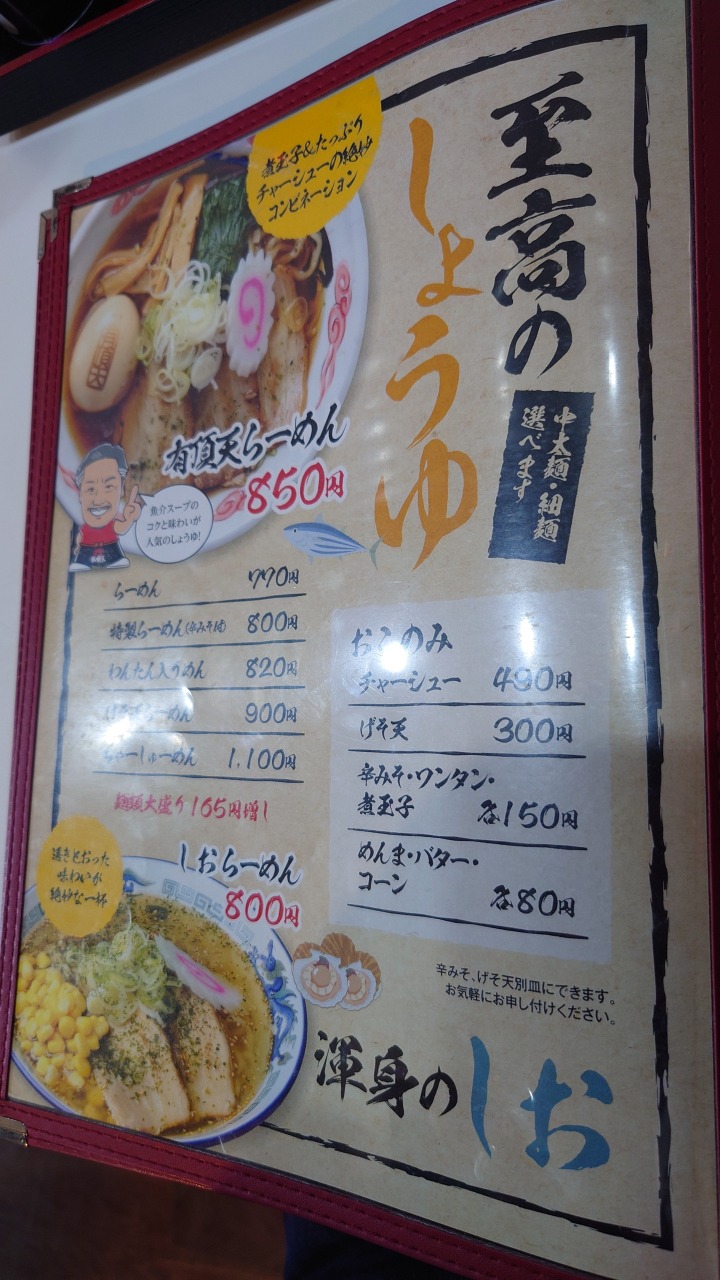 至高の
しょうゆ
中太麺・細麺
選べます
煮玉子&たっぷり
チャーシューの絶妙
コンビネーション
有頂天らーめん
850円
魚介スープの
コクと味わいが
人気のしょうゆ!
らーめん 770円
特製らーめん(辛みそ付) 800円
わんたん入らーめん 820円
げそ天らーめん 900円
ちゃーしゅーめん 1,100円
麺類大盛り165円増し
おこのみ
チャーシュー 480円
げそ天 300円
辛みそ・ワンタン・
煮玉子 各150円
めんま・バター・
コーン 各80円
辛みそ、げそ天別皿にできます。
お気軽にお申し付けください。
透きとおった
味わいが
絶妙な一杯
しおらーめん
800円
渾身の
しお